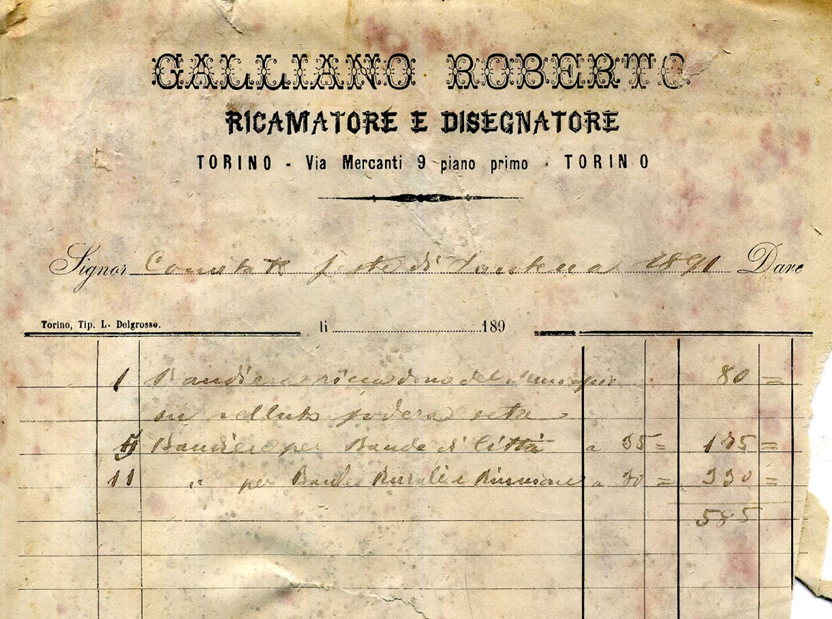 GALLIANO ROBERTO
RICAMATORE E DISEGNATORE
TORINO - Via Mercanti 9 piano primo - TORINO
Signor Comitato feste di 1891 Dare
Torino, Tip. L. Delgrosso. li 189
1 Bandiera del Municipio 80 =
su velluto fodera seta
5 Bandiere per Bande di Città a 35 = 175 =
11 " per Bande Rurali e a 30 = 330 =
585